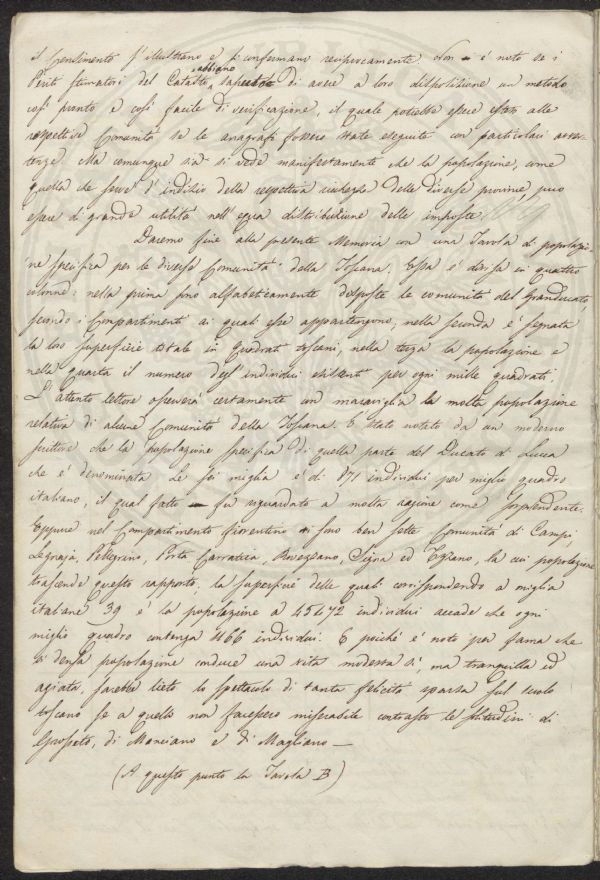 il Censimento s'illustrano e si confermano reciprocamente. Non è noto se i
Periti stimatori del Catasto abbiano saputo di avere a loro disposizione un metodo
così pronto e così facile di verificazione, il quale potrebbe essere esteso alle
respettive Comunità se le anagrafi fossero state eseguite con particolari avver-
tenze. Ma comunque sia si vede manifestamente che la popolazione, come
quella che serve d'indizio della respettiva ricchezza delle diverse provincie, può
essere di grande utilità nell'equa distribuzione delle imposte.
Daremo fine alla presente Memoria con una Tavola di popolazio-
ne specifica per le diverse Comunità della Toscana. Essa è divisa in quattro
colonne: nella prima sono alfabeticamente disposte le comunità del granducato,
secondo i Compartimenti ai quali esse appartengono, nella seconda è segnata
la loro superficie totale in quadrati toscani, nella terza la popolazione e
nella quarta il numero degl'individui esistenti per ogni mille quadrati.
L'attento lettore osserverà certamente con maraviglia la molta popolazione
relativa di alcune Comunità della Toscana. È stato notato da un moderno
scrittore che la popolazione specifica di quella parte del Ducato di Lucca
che è denominata Le sei miglia è di 871 individui per miglio quadro
italiano, il qual fatto fu riguardato a molta ragione come sorprendente.
Eppure nel Compartimento fiorentino vi sono ben sette Comunità di Campi,
Legnaja, Pellegrino, Porta Carratica, Rovezzano, Signa ed Tizzano, la cui popolazione
trascende questo rapporto: la superficie delle quali corrispondendo a miglia
italiane 39 e la popolazione a 45472 individui accade che ogni
miglio quadro contenga 1166 individui. E poiché è noto per fama che
sì densa popolazione conduce una vita modesta sì ma tranquilla ed
agiata, sarebbe lieto lo spettacolo di tanta felicità sparsa sul suolo
toscano se a quello non facessero miserabile contrasto le solitudini di
Grosseto, di Manciano e di Magliano —
(A questo punto la Tavola B)